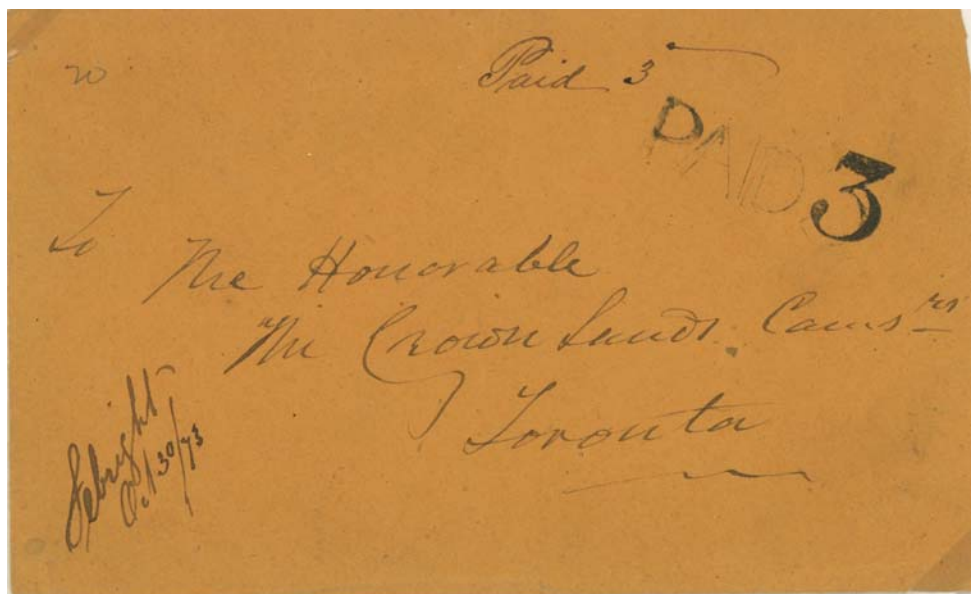 20
Paid 3
PAID 3
To
The Honorable
The Crown Lands Coms rs
Toronto
Sebright
Oct 30/73